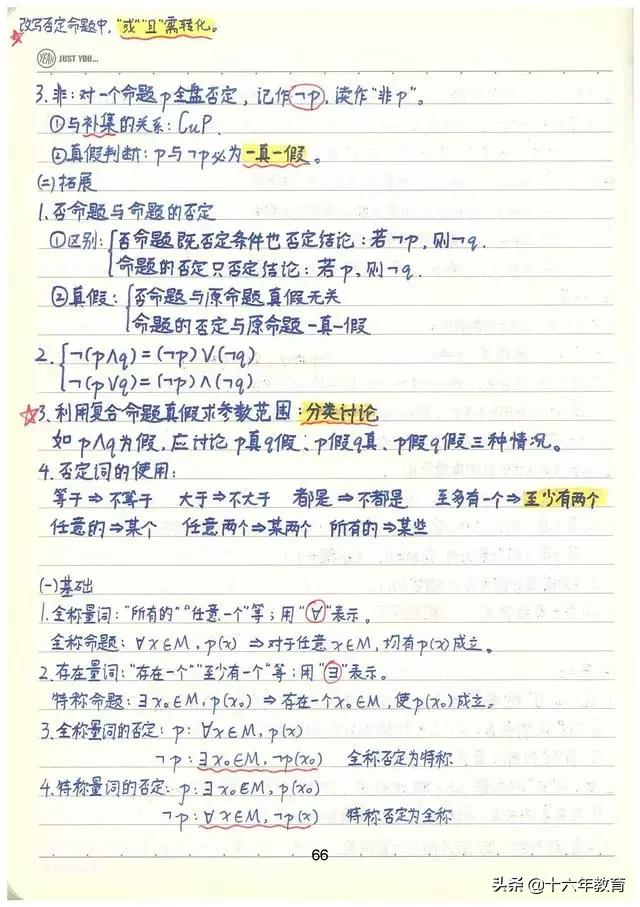 ☆改写否定命题中,"或""且"需转化。
YEAH JUST YOU...
3.非:对一个命题p全盘否定,记作¬p,读作"非p"。
①与补集的关系:∁UP.
②真假判断:p与¬p必为一真一假。
(二)拓展
1.否命题与命题的否定
①区别:{否命题既否定条件也否定结论:若¬p,则¬q.
命题的否定只否定结论:若p,则¬q.
②真假:{否命题与原命题真假无关
命题的否定与原命题一真一假
2.{¬(p∧q)=(¬p)∨(¬q)
¬(p∨q)=(¬p)∧(¬q)
☆3.利用复合命题真假求参数范围:分类讨论
如p∧q为假,应讨论p真q假、p假q真、p假q假三种情况。
4.否定词的使用:
等于⇒不等于 大于⇒不大于 都是⇒不都是 至多有一个⇒至少有两个
任意的⇒某个 任意两个⇒某两个 所有的⇒某些
(一)基础
1.全称量词:"所有的""任意一个"等;用"∀"表示。
全称命题:∀x∈M,p(x)⇒对于任意x∈M,均有p(x)成立。
2.存在量词:"存在一个""至少有一个"等;用"∃"表示。
特称命题:∃x₀∈M,p(x₀)⇒存在一个x₀∈M,使p(x₀)成立。
3.全称量词的否定:p:∀x∈M,p(x)
¬p:∃x₀∈M,¬p(x₀) 全称否定为特称
4.特称量词的否定:p:∃x₀∈M,p(x₀)
¬p:∀x∈M,¬p(x) 特称否定为全称
66
头条@十六年教育